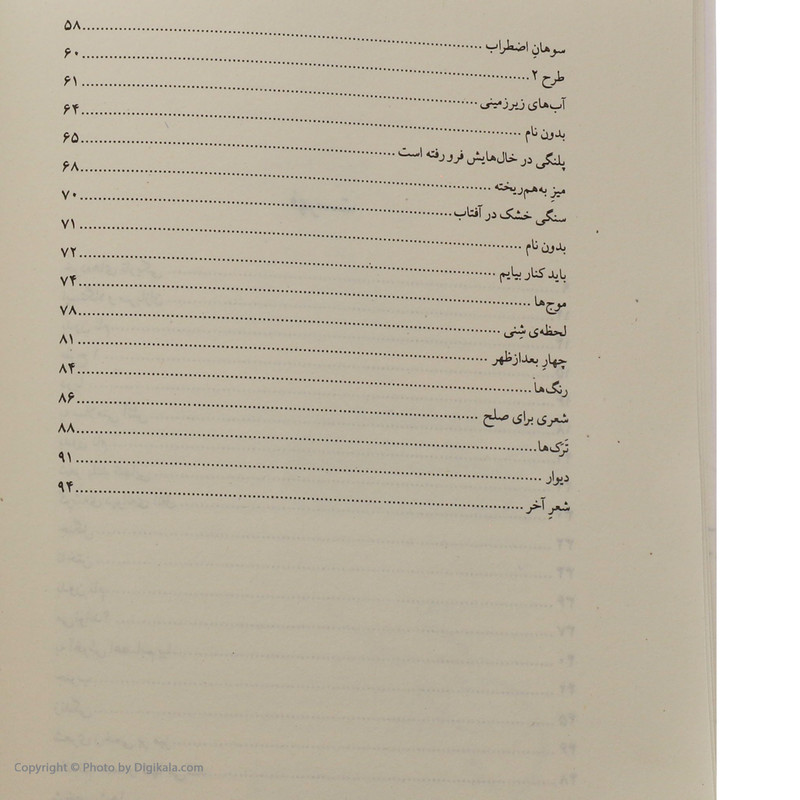 سوهانِ اضطراب ۵۸
طرح ۲ ۶۰
آب‌های زیرزمینی ۶۱
بدون نام ۶۴
پلنگی در خال‌هایش فرو رفته است ۶۵
میزِ به‌هم‌ریخته ۶۸
سنگی خشک در آفتاب ۷۰
بدون نام ۷۱
باید کنار بیایم ۷۲
موج‌ها ۷۴
لحظه‌ی شِنی ۷۸
چهارِ بعدازظهر ۸۱
رنگ‌ها ۸۴
شعری برای صلح ۸۶
تَرَک‌ها ۸۸
دیوار ۹۱
شعرِ آخر ۹۴
Copyright © Photo by Digikala.com